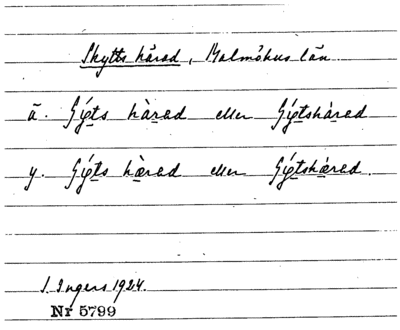 Skytts härad, Malmöhus län
ä. Sýt̲s hàr̲ad eller Sýt̲shàr̲ad
y. Sýt̲s hær̲ad eller Sýt̲shær̲ad.
I. Ingers 1924.
Nr 5799